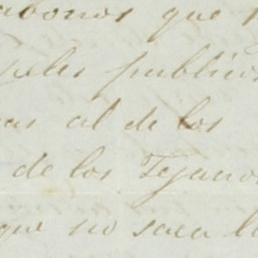 abonos que
peles publicos
as al de los
de los Tejanos
que no saca l